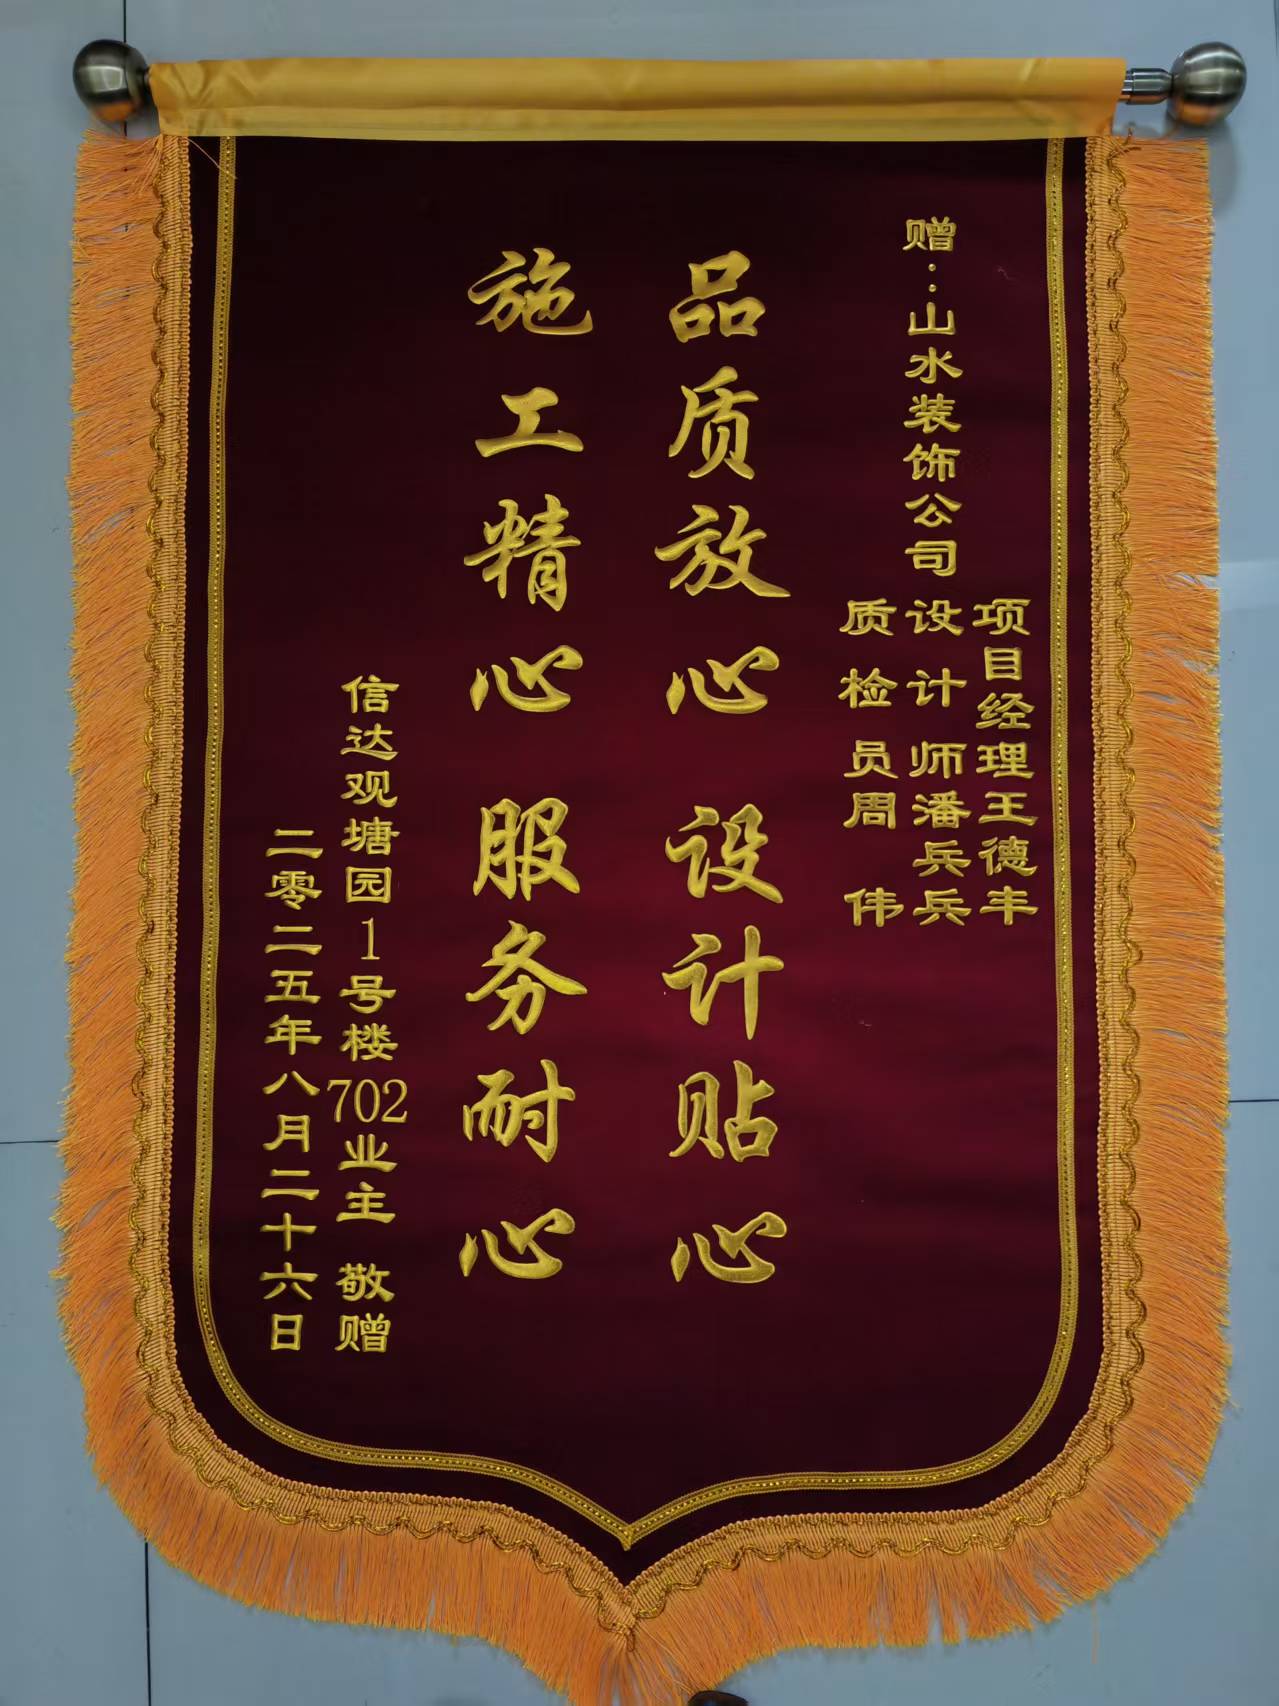 赠：山水装饰公司
项目经理王德丰
设计师潘兵兵
质检员周伟
品质放心 设计贴心
施工精心 服务耐心
信达观塘园1号楼702业主 敬赠
二零二五年八月二十六日